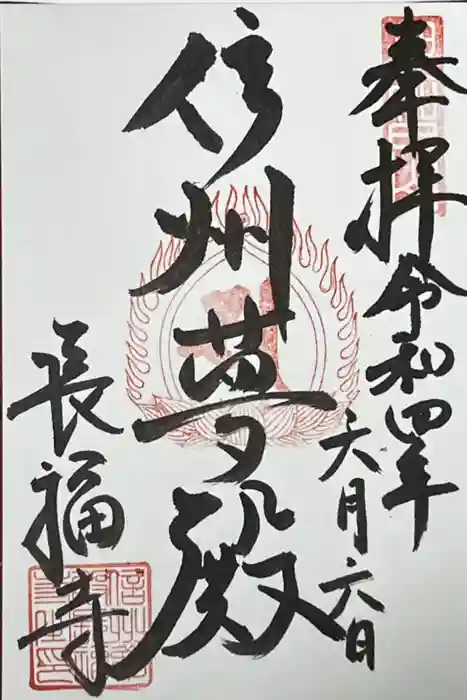 奉拝 令和四年
六月六日
信州夢殿
長福寺